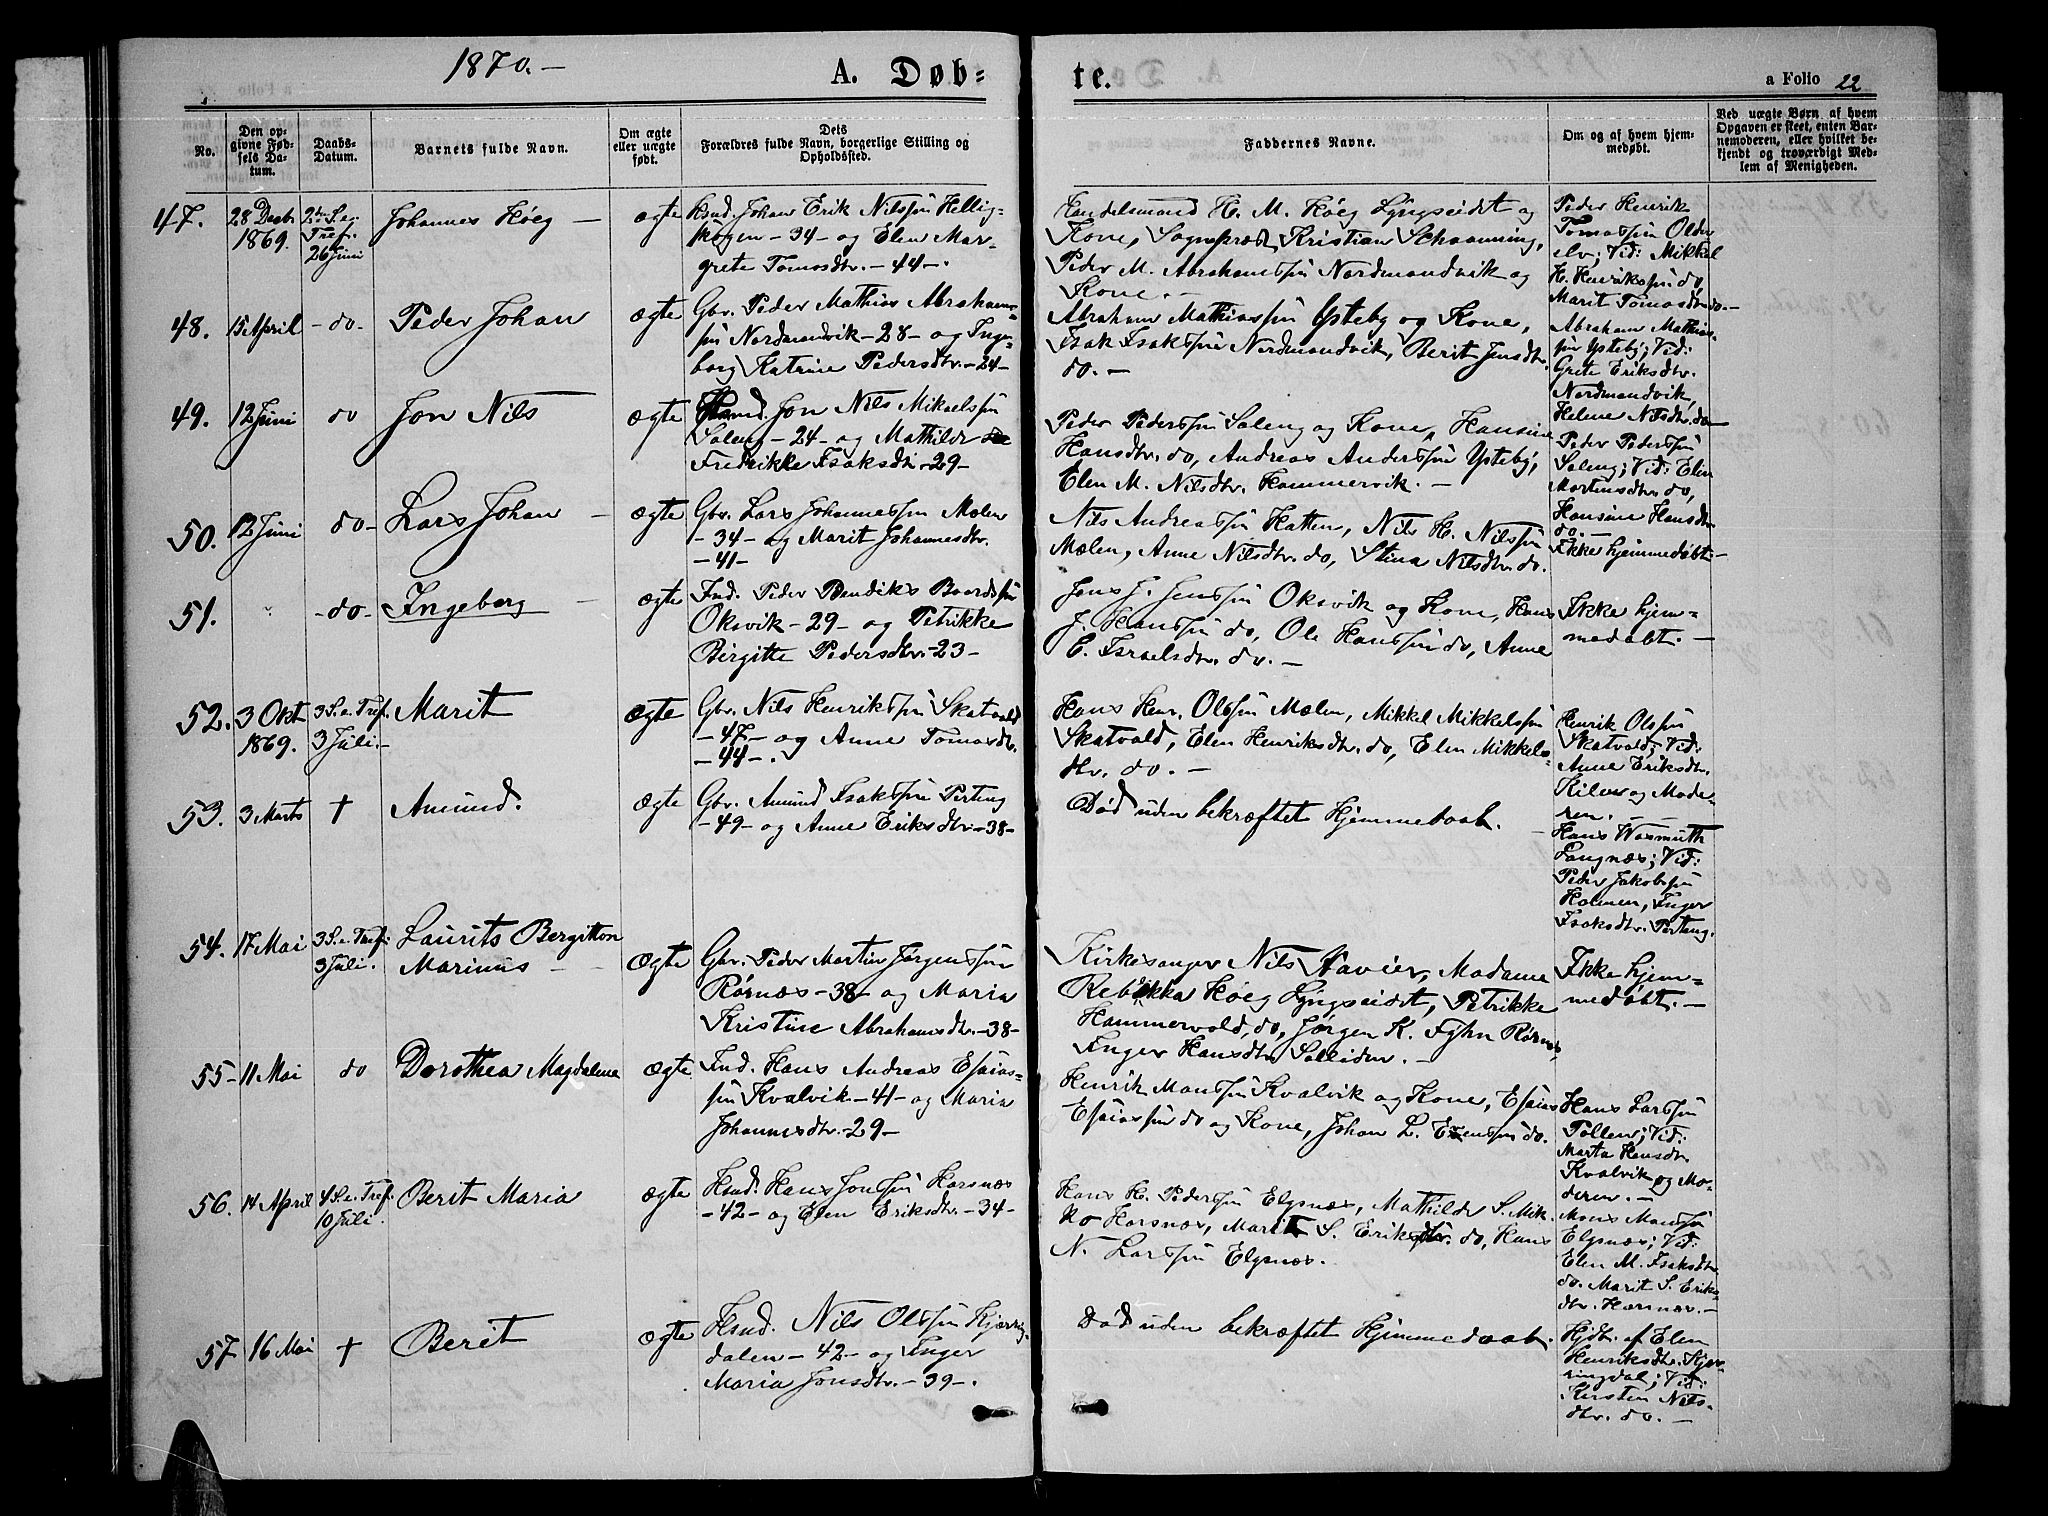 1870.-
A. Døb=
te.
a Folio 22
No.
Den op-
givne Fød-
sels Da-
tum.
Daabs-
Datum.
Barnets fulde Navn.
Om ægte
eller uægte
født.
Dets
Forældres fulde Navn, borgerlige Stilling og
Opholdssted.
Faddernes Navne.
Om og af hvem hjem-
medøbt.
Ved uægte Børn af hvem
Opgaven er skeet, enten Bar-
nemoderen, eller hvilket be-
kjendt og troværdigt Med-
lem af Menigheden.
47.
28 Decbr
1869.
2den S. e.
Tref.
26 Juni
Johannes Høeg -
ægte
Hsnd. Johan Erik Nilssøn Hellig-
skogen - 34 - og Elen Mar-
grete Tomasdtr. - 44 -.
Handelsmand H. M. Høeg Lyngseidet og
Kone, Sognepræst Kristian Schaanning,
Peder M. Abrahamssøn Nordmandvik og
Kone. -
Peder Henrik
Tomassøn Older
elv; Vid: Mikkel
H. Henrikssøn do,
Marit Tomasdtr. do. -
48.
15 April
- do.
Peder Johan
ægte
Gbr. Peder Mathias Abrahams-
søn Nordmandvik - 28 - og Inge-
borg Katrine Pedersdtr. - 24 -
Abraham Mathiassøn Ysteby og Kone,
Isak Isakssøn Nordmandvik, Berit Jensdtr.
do. -
Abraham Mathias-
søn Ysteby; Vid:
Grete Eriksdtr.
Nordmandvik,
Helene Nilsdtr. do -
49.
12 Juni
do
Jon Nils
ægte
Hsnd. Jon Nils Mikaelssøn
Saleng - 24 - og Mathilde
Fredrikke Isaksdtr - 29 -
Peder Pederssøn Saleng og Kone, Hansine
Hansdtr. do, Andreas Anderssøn Ysteby,
Elen M. Nilsdtr. Hammervik. -
Peder Pederssøn
Saleng; Vid: Elen
Martinsdtr. do,
Hansine Hansdtr
do. -
50.
12 Juni
do -
Lars Johan -
ægte
Gbr. Lars Johannessøn Mælen
- 34 - og Marit Johannesdtr.
- 41 -
Nils Andreassøn Hatten, Nils H. Nilssøn
Mælen, Anne Nilsdtr. do, Stina Nilsdtr. do.
Ikke hjemmedøbt. -
51.
- do -
Ingeborg -
ægte
Ind. Peder Bendiks Baardssøn
Oksvik - 29 - og Petrikke
Birgitte Pedersdtr. - 23 -
Jens J. Jenssøn Oksvik og Kone, Hans
J. Hanssøn do, Ole Hanssøn do, Anne
E. Israelsdtr. do. -
Ikke hjem-
medøbt. -
52.
3 Okt
1869.
3 S. e. Tref.
3 Juli. -
Marit
ægte
Gbr. Nils Henrikssøn Skatvold
- 47 - og Anne Tomasdtr.
- 44 - .
Hans Henr. Olssøn Mælen, Mikkel Mikkelssøn
Skatvold, Elen Henriksdtr. do, Elen Mikkels-
dtr. do. -
Henrik Olssøn
Skatvold; Vid:
Anne Eriksdtr.
Kilen og Mode-
ren. -
53.
3 Marts
†
Amund.
ægte
Gbr. Amund Isakssøn Pertung
- 49 - og Anne Eriksdtr. - 38 -
Død uden bekræftet Hjemmedaab. -
Hans Wasmuth
Langnæs; Vid:
Peder Jakobssøn
Holmen, Inger
Isaksdtr. Pertung.
54.
17 Mai
3 S. e. Tref:
3 Juli.
Laurits Bergitton
Marinus -
ægte
Gbr. Peder Martin Jørgenssøn
Rørnæs - 38 - og Maria
Kristine Abrahamsdtr. - 38 -
Kirkesanger Nils Xavier, Madame
Rebekka Høeg Lyngseidet, Petrikke
Hammervold, do, Jørgen K. Fyhn Rørnæs,
Inger Hansdtr Solliden. -
Ikke hjem-
medøbt. -
55 -
11 Mai
do
Dorothea Magdalena
ægte
Ind. Hans Andreas Esaias-
søn Kvalvik - 41 - og Maria
Johannesdtr. - 29 -
Henrik Monssøn Kvalvik og Kone, Esaias
Esaiassøn do og Kone, Johan L. Evenssøn do.
Hans Larssøn
Pollen; Vid:
Marta Hansdtr.
Kvalvik og Mo-
deren. -
56.
14 April
4 S. e. Tref.
10 Juli.
Berit Maria
ægte
Hsnd. Hans Jonssøn Horsnæs
- 42 - og Elen Eriksdtr. - 34 -
Hans H. Pederssøn Elgsnæs, Mathilde S. Mik-
ko Horsnæs, Marit S. Eriksdtr. do, Hans
N. Larssøn Elgsnæs.
Mons Monssøn
Elgsnæs; Vid:
Elen M. Isaksdtr.
do. Marit S. Eriks-
dtr. Horsnæs. -
57
16 Mai
†
Berit
ægte
Hsnd. Nils Olssøn Kjærring-
dalen - 42 - og Inger
Maria Jonsdtr. - 39 - .
Død uden bekræftet Hjemmedaab.
Hjdbt. af Elen
Henriksdtr. Kjær-
ringdal; Vid:
Kirsten Nils-
dtr. do. -